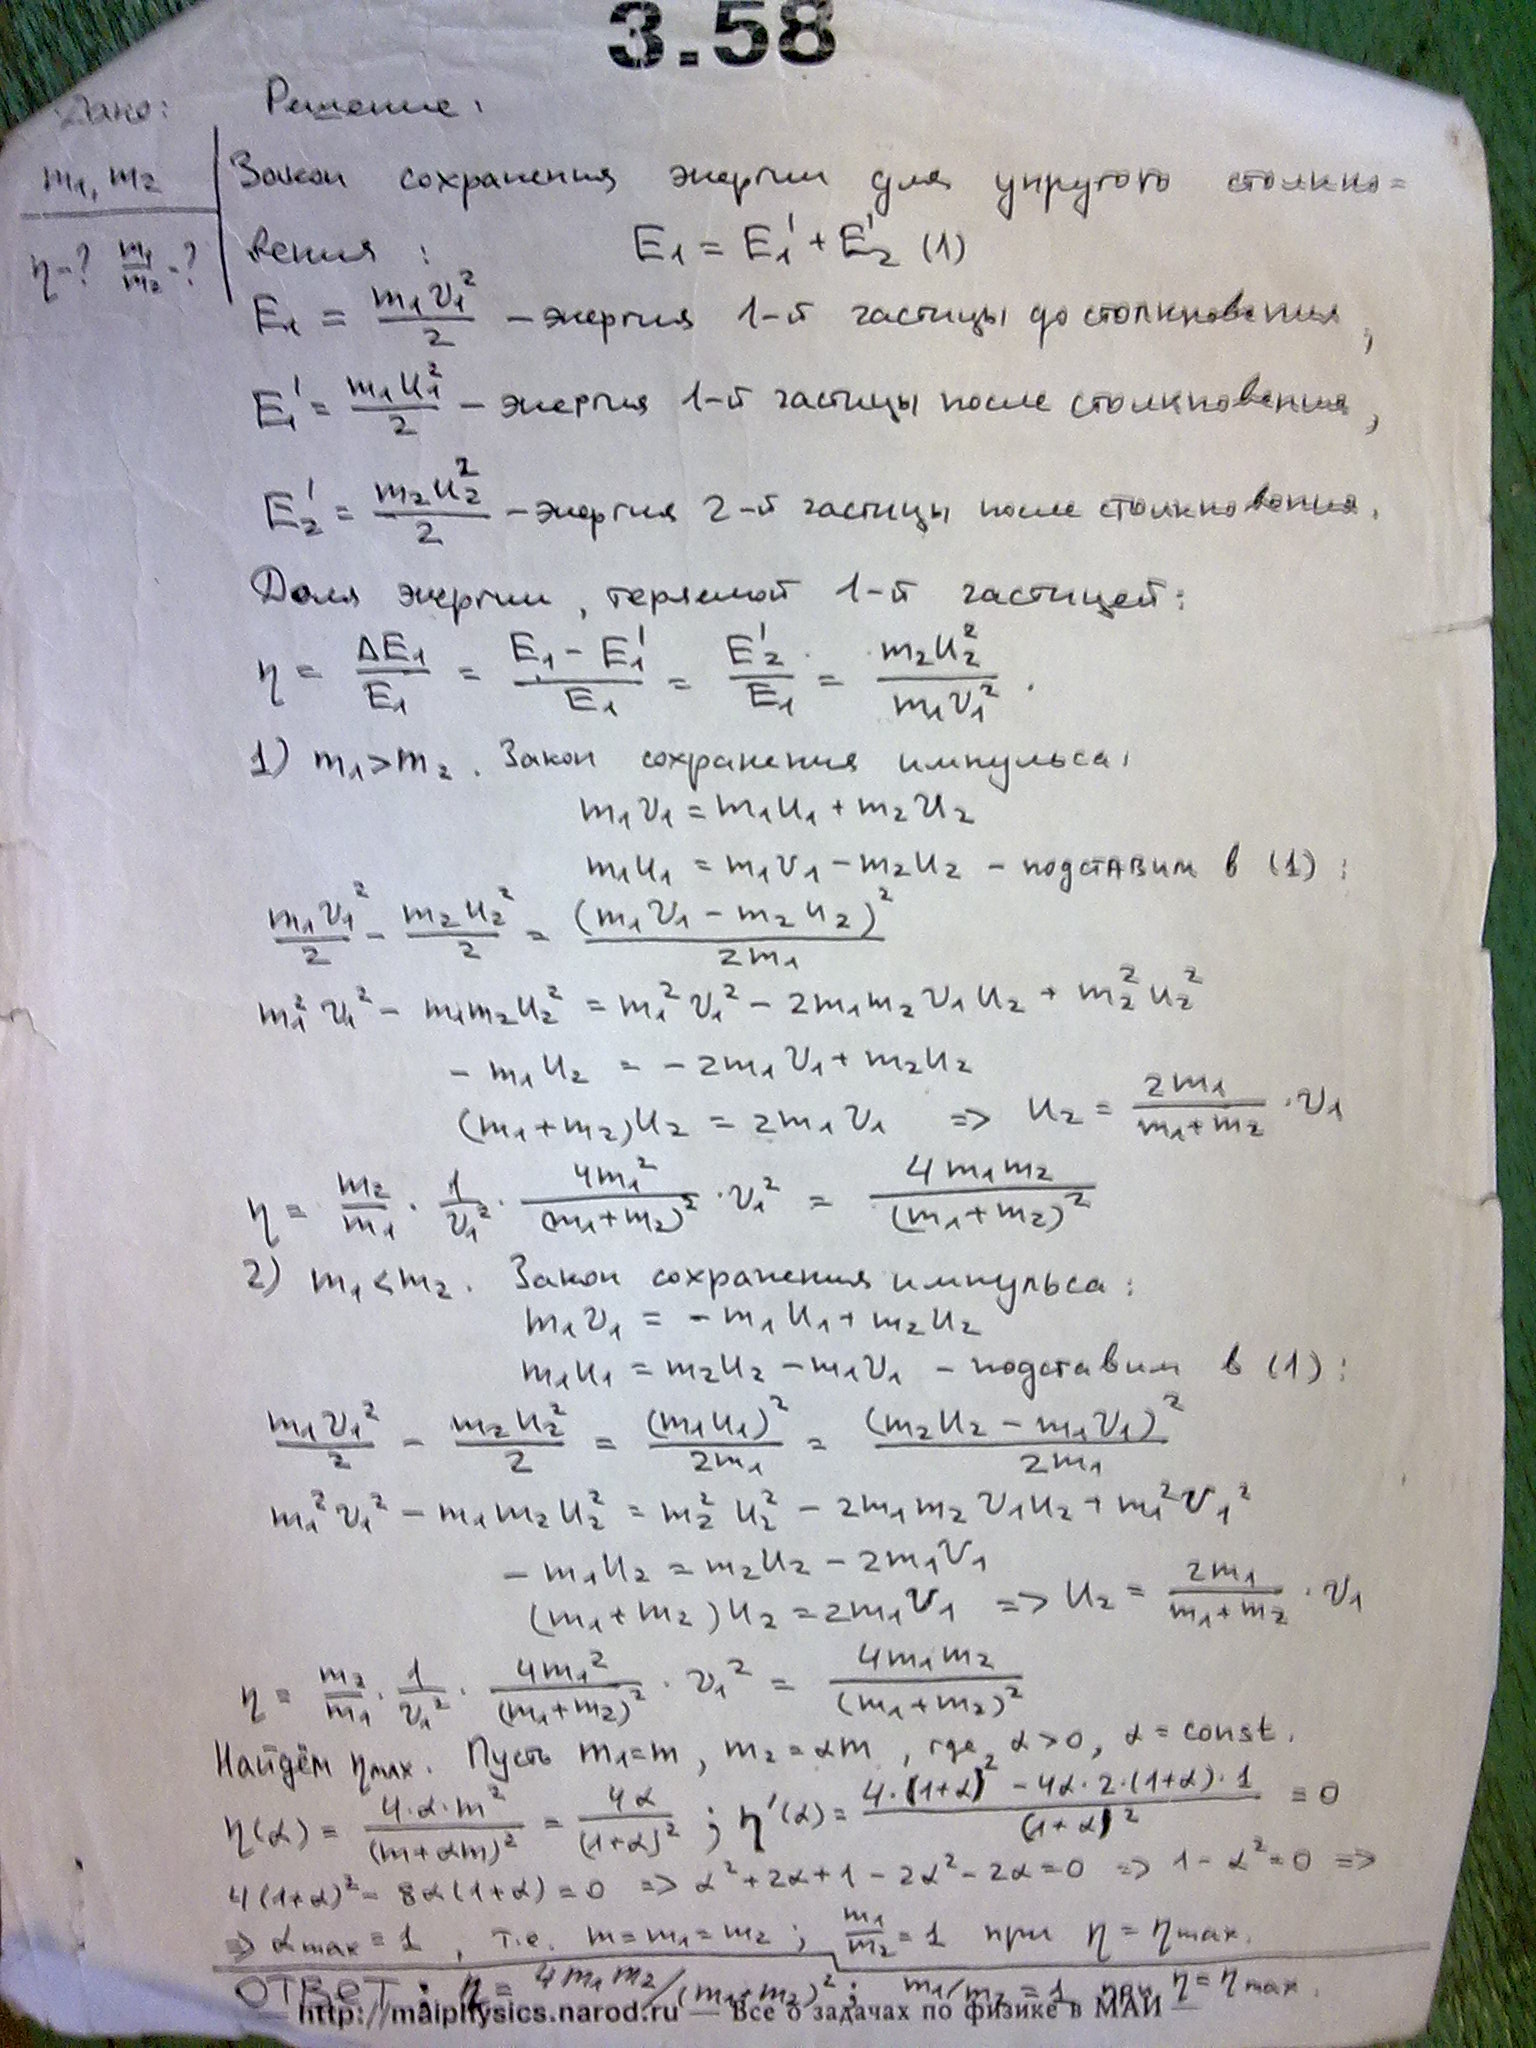 3.58
Дано: Решение:
m₁, m₂ Закон сохранения энергии для упругого столкно=
η-? m₁/m₂-? вения: E₁ = E₁' + E₂' (1)
E₁ = m₁v₁²/2 – энергия 1-й частицы до столкновения,
E₁' = m₁u₁²/2 – энергия 1-й частицы после столкновения,
E₂' = m₂u₂²/2 – энергия 2-й частицы после столкновения.
Доля энергии, теряемой 1-й частицей:
η = ΔE₁/E₁ = (E₁ - E₁')/E₁ = E₂'/E₁ = m₂u₂²/m₁v₁².
1) m₁>m₂. Закон сохранения импульса:
m₁v₁ = m₁u₁ + m₂u₂
m₁u₁ = m₁v₁ – m₂u₂ – подставим в (1):
m₁v₁²/2 – m₂u₂²/2 = (m₁v₁ – m₂u₂)²/2m₁
m₁²v₁² – m₁m₂u₂² = m₁²v₁² – 2m₁m₂v₁u₂ + m₂²u₂²
– m₁u₂ = – 2m₁v₁ + m₂u₂
(m₁+m₂)u₂ = 2m₁v₁ => u₂ = 2m₁/(m₁+m₂) · v₁
η = m₂/m₁ · 1/v₁² · 4m₁²/(m₁+m₂)² · v₁² = 4m₁m₂/(m₁+m₂)²
2) m₁<m₂. Закон сохранения импульса:
m₁v₁ = – m₁u₁ + m₂u₂
m₁u₁ = m₂u₂ – m₁v₁ – подставим в (1):
m₁v₁²/2 – m₂u₂²/2 = (m₁u₁)²/2m₁ = (m₂u₂ – m₁v₁)²/2m₁
m₁²v₁² – m₁m₂u₂² = m₂²u₂² – 2m₁m₂v₁u₂ + m₁²v₁²
– m₁u₂ = m₂u₂ – 2m₁v₁
(m₁+m₂)u₂ = 2m₁v₁ => u₂ = 2m₁/(m₁+m₂) · v₁
η = m₂/m₁ · 1/v₁² · 4m₁²/(m₁+m₂)² · v₁² = 4m₁m₂/(m₁+m₂)²
Найдём ηmax. Пусть m₁=m, m₂=αm, где α>0, α=const.
η(α) = 4·α·m²/(m+αm)² = 4α/(1+α)²; η'(α) = (4·(1+α)² – 4α·2·(1+α)·1)/(1+α)² = 0
4(1+α)² – 8α(1+α) = 0 => α²+2α+1–2α²–2α=0 => 1–α²=0 =>
=> αmax = 1, т.е. m=m₁=m₂; m₁/m₂=1 при η=ηmax.
ОТВЕТ: η = 4m₁m₂/(m₁+m₂)²; m₁/m₂ = 1 при η=ηmax.
— http://maiphysics.narod.ru — Все о задачах по физике в МАИ —